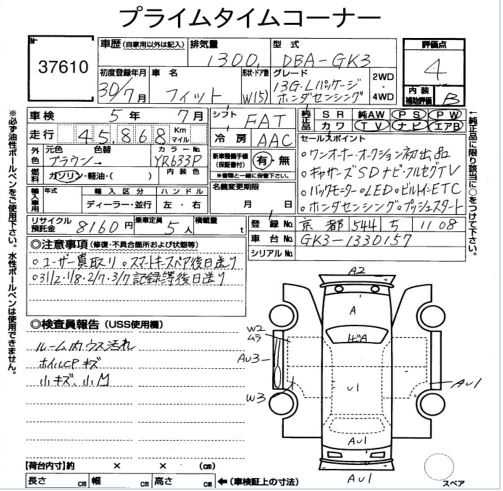 プライムタイムコーナー
37610
車歴 (自家用以外は記入) 排気量 型式
1300 DBA-GK3
評価点
4
内装
補助評価 B
初度登録年月 車名 形状・ドア数 グレード
30/7月 フィット W(5) 13G・Lパッケージ
ホンダセンシング
2WD・4WD
車検 5年 7月
走行 45,868 Km マイル
シフト FAT
冷房 AAC
純正 SR 純正AW PS PW
装備 カワ TV ナビ エアB
外色 元色 色替 カラーNo. 内色
ブラウン YR633P
燃料 ガソリン・軽油・( )
輸入車 輸入区分 ハンドル
ディーラー・並行 左・右
新車整備手帳
(保証書付) 有・無
名義変更期限
月 日
セールスポイント
○ワンオーナーオークション初出品
○ギャザーズSDナビ・フルセグTV
○バックモニター○LED○ビルトインETC
○ホンダセンシング○プッシュスタート
リサイクル預託金 8160円 乗車定員 5人 積載量 t
登録No. 京都 544 ち 1108
車台No. GK3-1330157
シリアルNo.
○注意事項 (修復・不具合箇所および状態等)
○ユーザー買取り ○スマートキースペア後日送り
○31/2・1/8・2/7・3/7記録簿後日送り
○検査員報告 (USS使用欄)
ルーム内ウス汚れ
ホイルCPキズ
小キズ、小凹
A2
A
W2
ムラ
AU3
W3
ヒA
U1
AU1
AU1
スペア
【荷台内寸】約 × × (cm)
長さ (cm) 幅 (cm) 高さ (cm) ←(車検証上の寸法)
※必ず油性ボールペンをご使用下さい。水性ボールペンは使用できません。
※純正品に限り該当に○をつけて下さい。